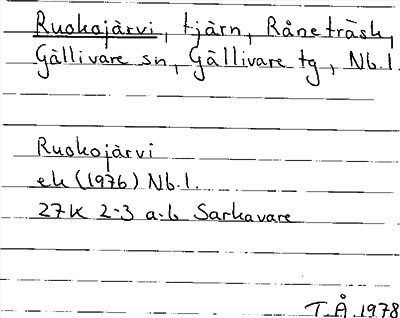 Ruokojärvi, tjärn, Råneträsk,
Gällivare sn, Gällivare tg, Nb.l.
Ruokojärvi
ek (1976) Nb.l.
27K 2-3 a-b Sarkavare
T.Å. 1978